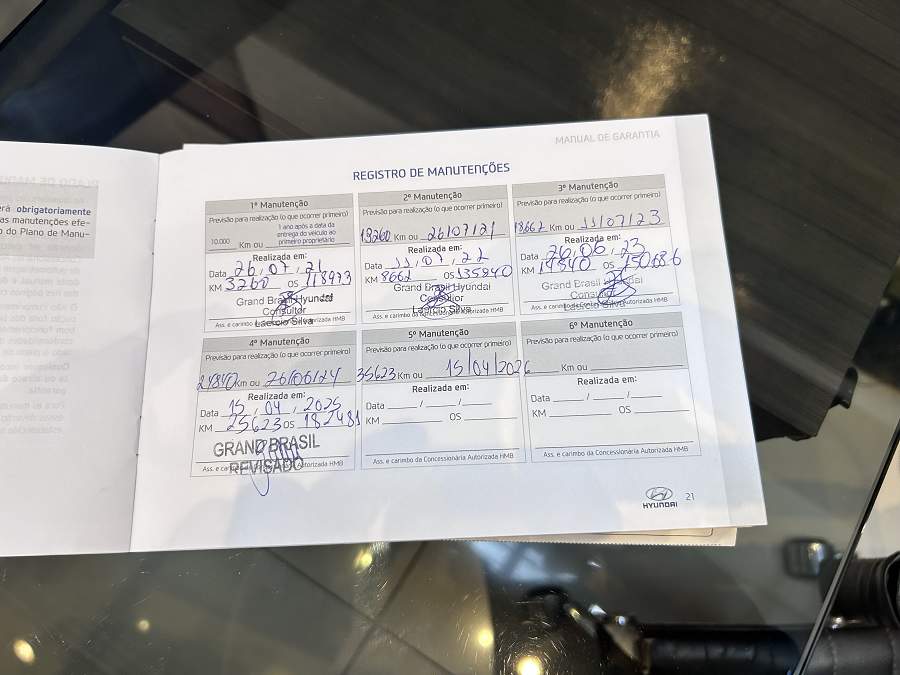 MANUAL DE GARANTIA
erá obrigatoriamente
as manutenções efe-
o do Plano de Manu-
REGISTRO DE MANUTENÇÕES
1ª Manutenção
Previsão para realização (o que ocorrer primeiro)
10.000 Km ou 1 ano após a data da entrega do veículo ao primeiro proprietário
Realizada em:
Data 26, 07, 21
KM 3260 OS 118973
Grand Brasil Hyundai
Consultor
Laercio Silva
Ass. e carimbo da Concessionária Autorizada HMB
2ª Manutenção
Previsão para realização (o que ocorrer primeiro)
13260 Km ou 26/07/21
Realizada em:
Data 11, 07, 22
KM 8662 OS 135840
Grand Brasil Hyundai
Consultor
Laercio Silva
Ass. e carimbo da Concessionária Autorizada HMB
3ª Manutenção
Previsão para realização (o que ocorrer primeiro)
18662 Km ou 11/07/23
Realizada em:
Data 26, 06, 23
KM 14840 OS 150686
Grand Brasil Hyundai
Consultor
Ass. e carimbo da Concessionária Autorizada HMB
4ª Manutenção
Previsão para realização (o que ocorrer primeiro)
24840 Km ou 26/06/24
Realizada em:
Data 15, 04, 2025
KM 25623 OS 182481
GRAND BRASIL
REVISADO
Ass. e carimbo da Concessionária Autorizada HMB
5ª Manutenção
Previsão para realização (o que ocorrer primeiro)
35623 Km ou 15/04/2026
Realizada em:
Data ___/___/___
KM ___ OS ___
Ass. e carimbo da Concessionária Autorizada HMB
6ª Manutenção
Previsão para realização (o que ocorrer primeiro)
___ Km ou ___
Realizada em:
Data ___/___/___
KM ___ OS ___
Ass. e carimbo da Concessionária Autorizada HMB
HYUNDAI
21